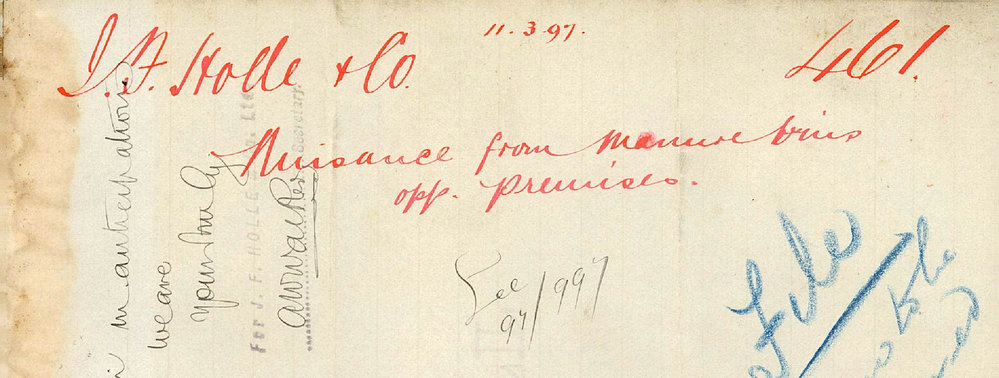 11.3.97.
J. F. Holle & Co. 461.
Nuisance from Manure bins
opp. premises.
See 97/997
File
in anticipation
we are
Yours truly
For J. F. HOLLE & Co. Ltd.
AW Walker Secretary.